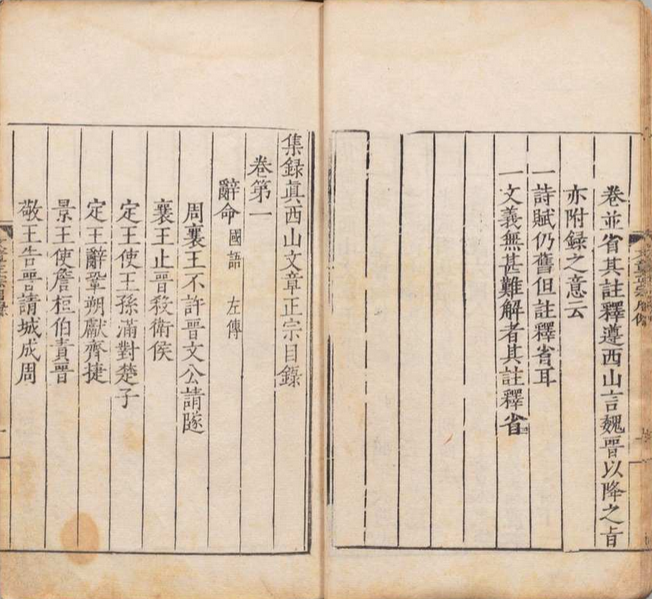 卷並省其註釋遵西山言魏晋以降之旨
亦附錄之意云
一詩賦仍舊但註釋省耳
一文義無甚難解者其註釋省
集錄眞西山文章正宗目錄
卷第一
辭命 國語 左傳
周襄王不許晋文公請隧
襄王止晋殺衛侯
定王使王孫滿對楚子
定王辭鞏朔獻齊捷
景王使詹桓伯責晋
敬王告晋請城成周